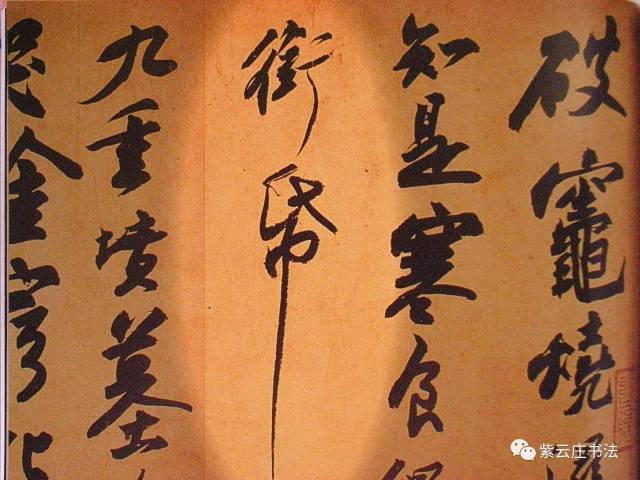 破竈燒
知是寒食
銜帋
九重墳墓
紫云庄书法